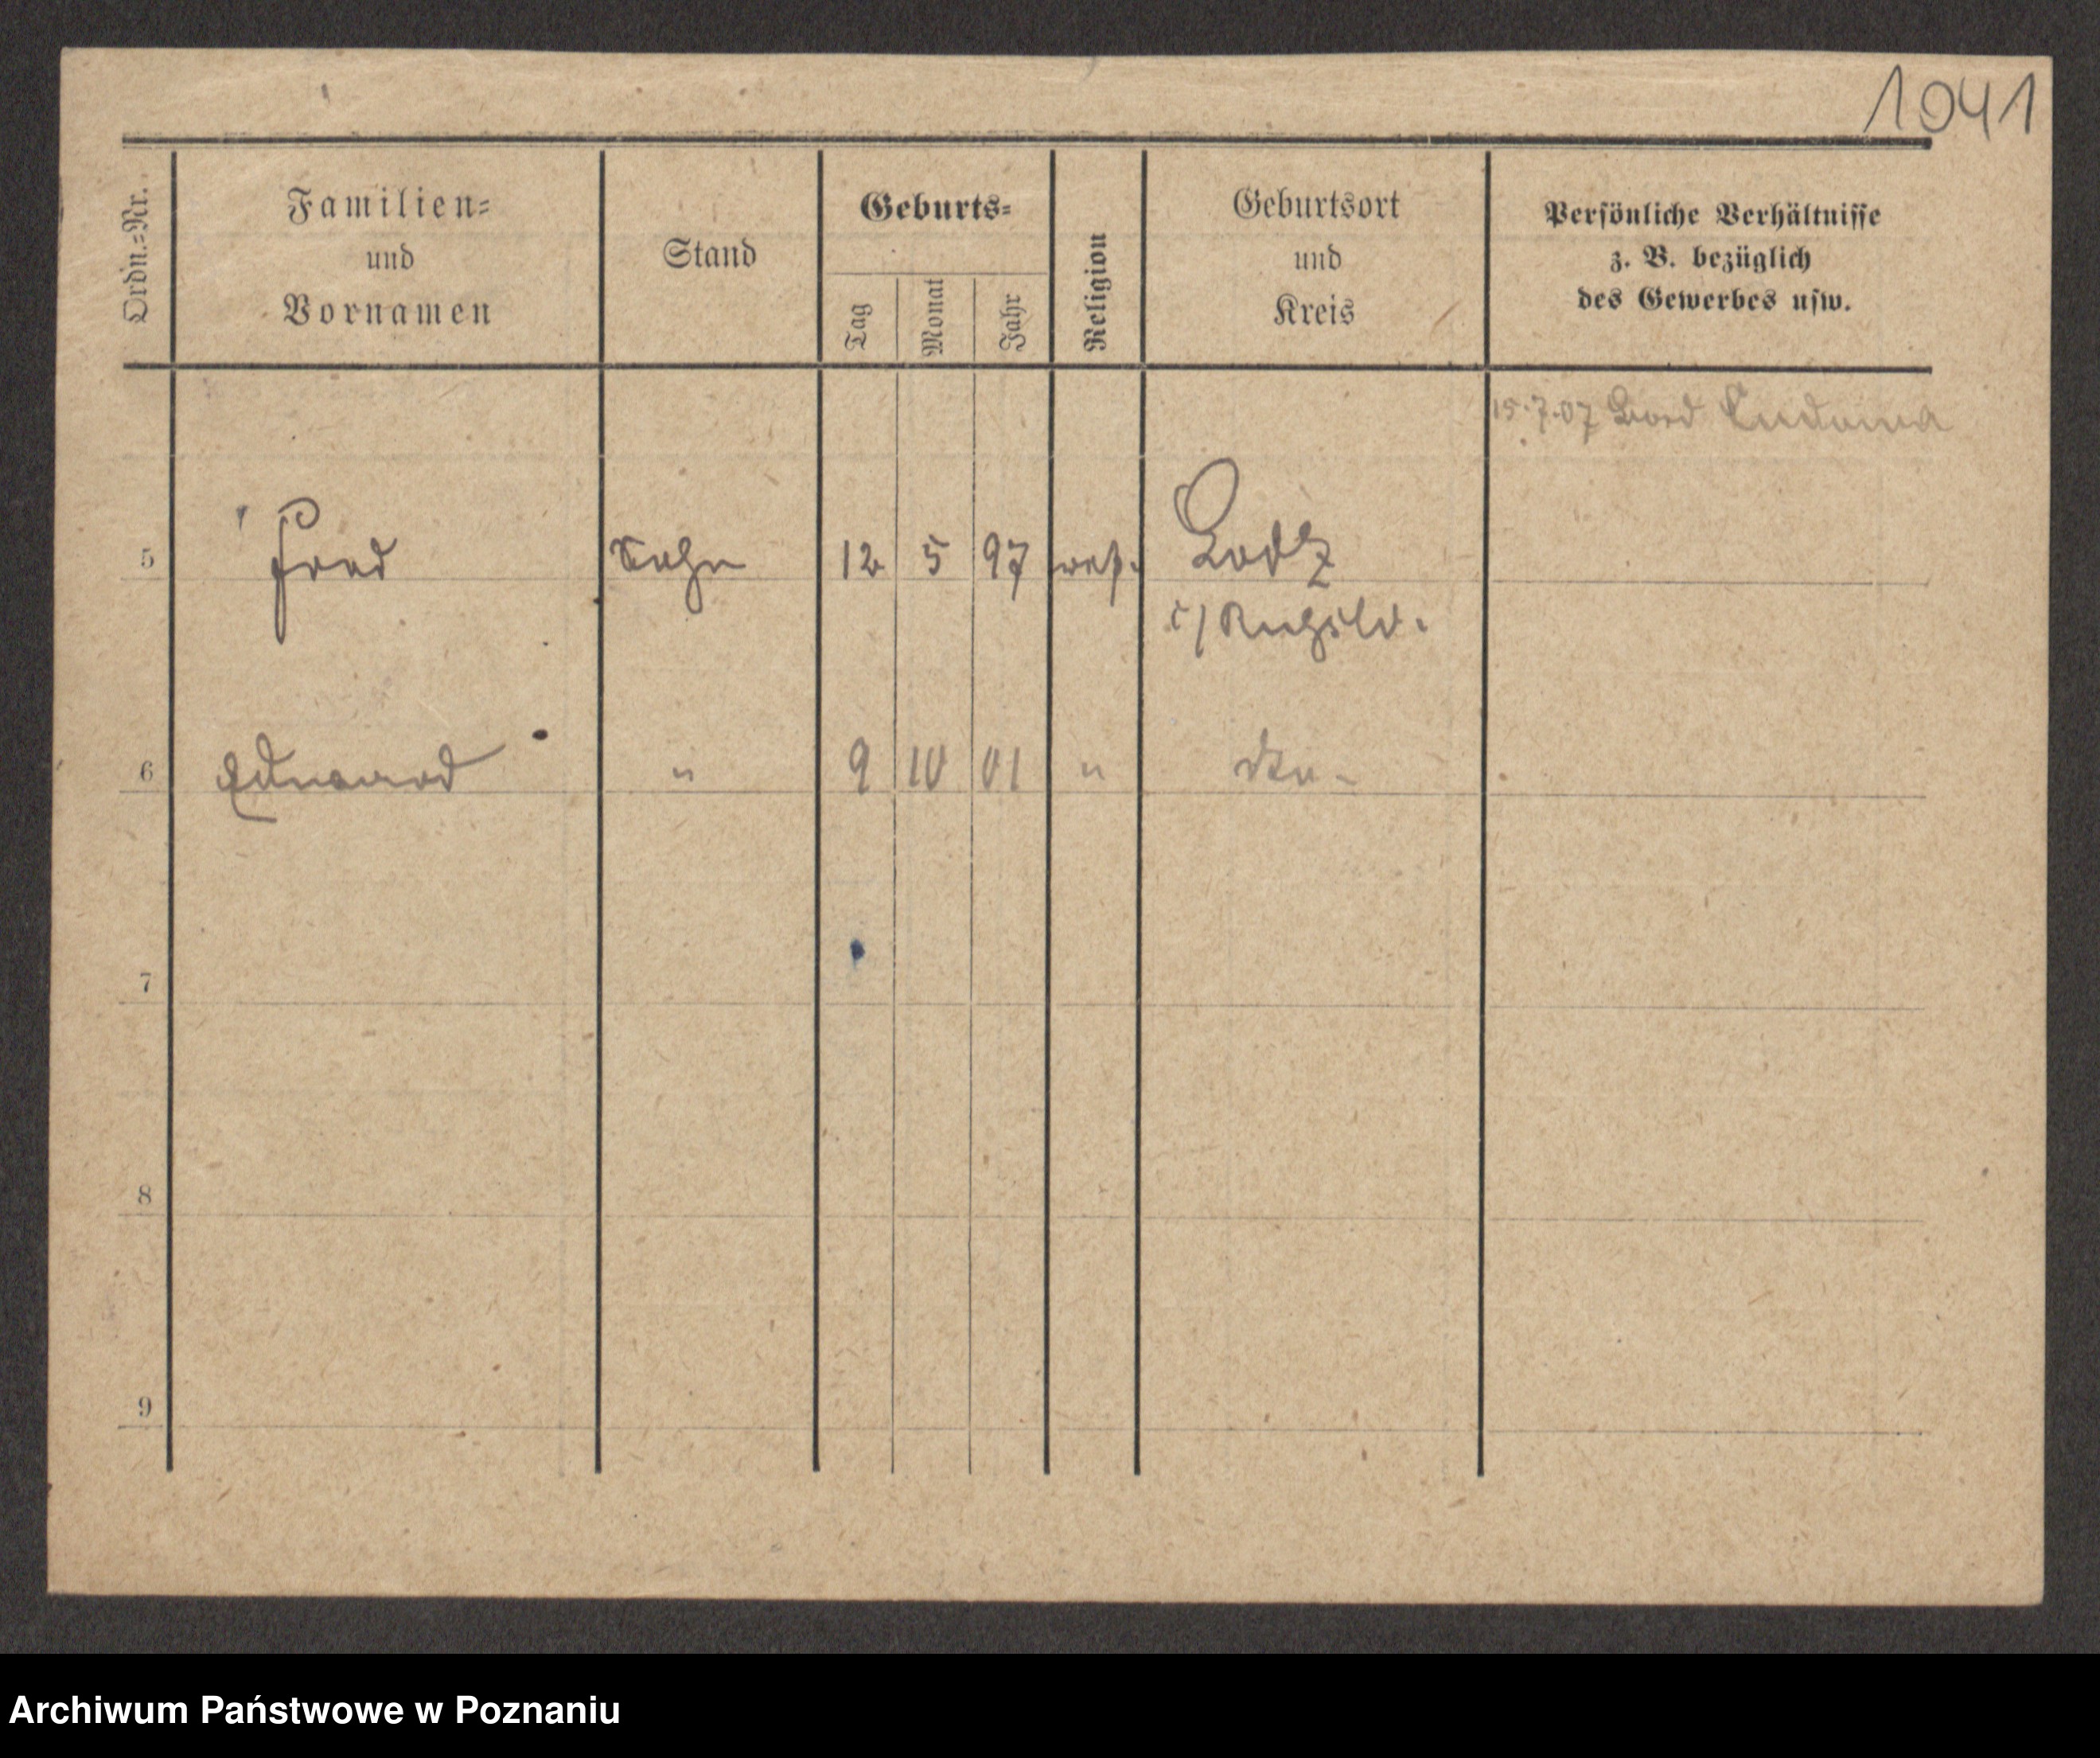 1041
Ordn.-Nr.
Familien-
und
Vornamen
Stand
Geburts-
Tag
Monat
Jahr
Religion
Geburtsort
und
Kreis
Persönliche Verhältnisse
z. B. bezüglich
des Gewerbes usw.
15.7.07
5 Fred Sohn 12 5 97 ref. Lodz
i/Rußld.
6 Eduard " 9 10 01 " dto -
7
8
9
Archiwum Państwowe w Poznaniu